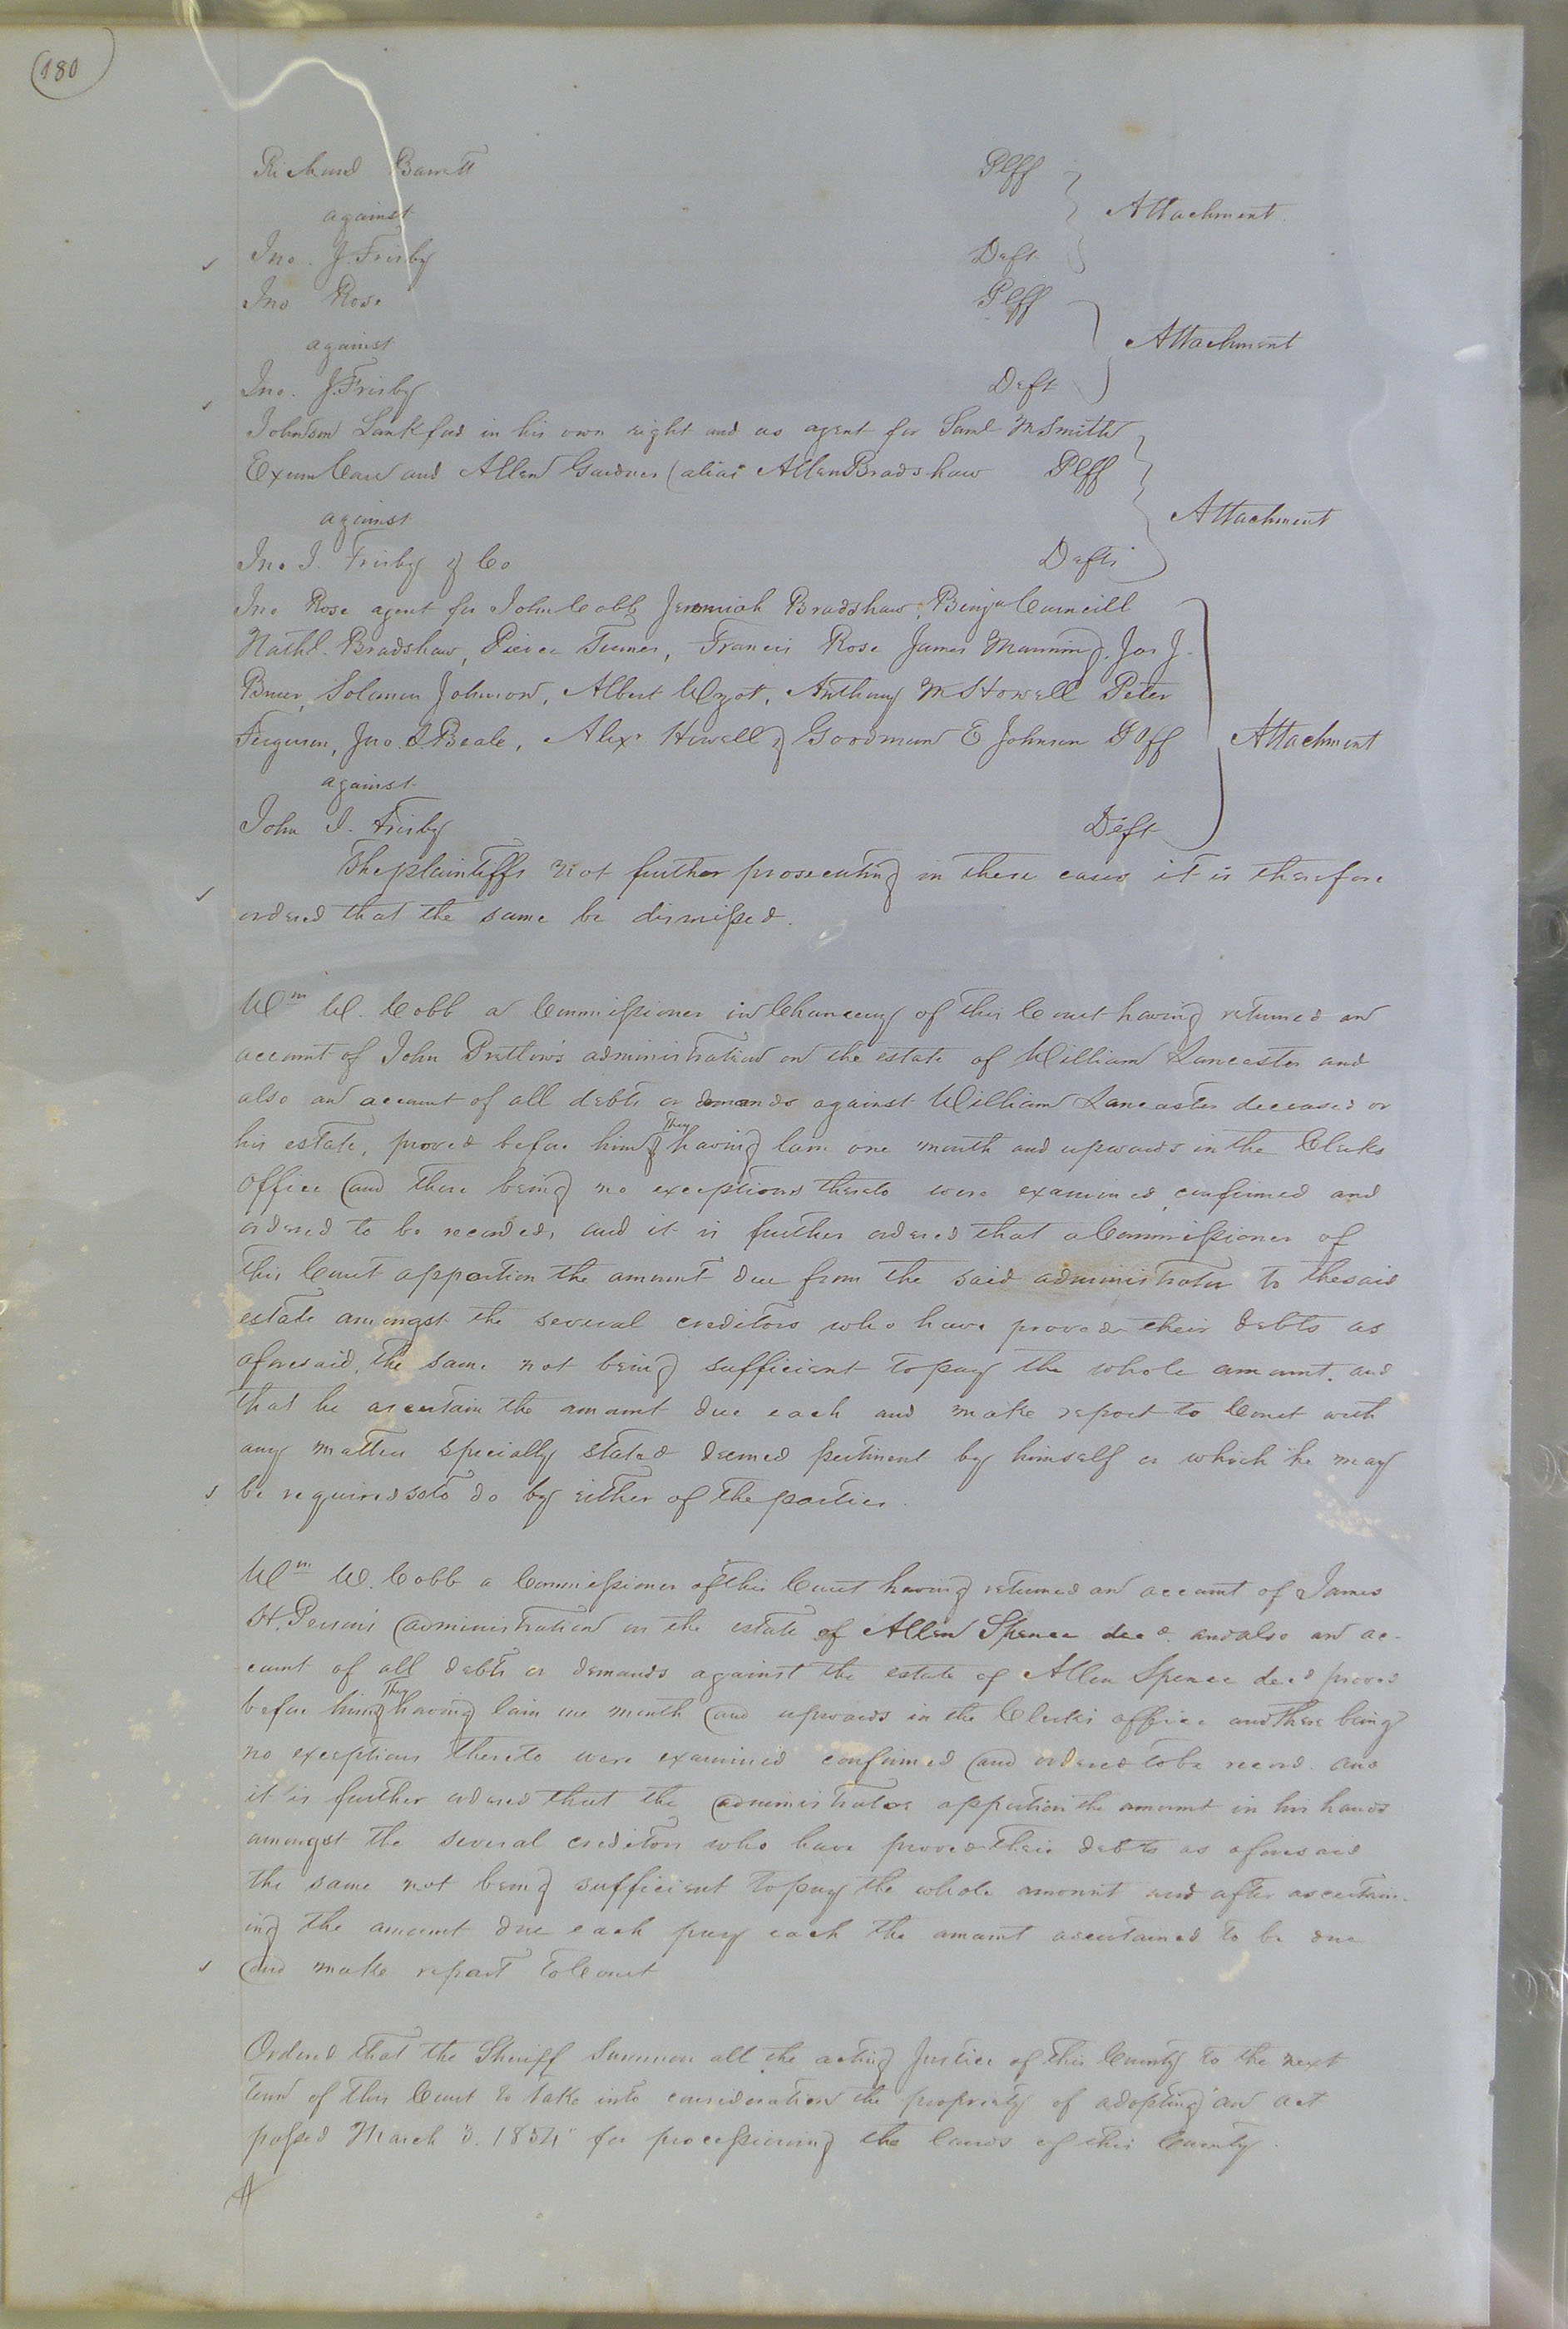 180
Richard Barrett Plff
against Attachment
Jno. J. Frisby Deft
Jno Rose Plff
against Attachment
Jno. J. Frisby Deft
Johnson Lankford in his own right and as agent for Saml M Smith
Exum and Allen Gardner (alias Allen Bradshaw Plff
against Attachment
Jno J. Frisby & Co Defts
Jno Rose agent for John Cobb Jeremiah Bradshaw, Benja
Nathl. Bradshaw, Peirce Turner, Francis Rose James Manning, Jas J.
Solomon Johnson, Albert Anthony M Stowell Peter
Ferguson, Jno. Beale, Alexr Howell & Goodman E Johnson Plff Attachment
against
John J. Frisby Deft
The plaintiffs not further prosecuting in these cases it is therefore
ordered that the same be dismissed.
Wm W. Cobb a Commissioner in Chancery of this Court having returned an
account of John Pretlow's administration on the estate of William Lancaster and
also an account of all debts or demands against William Lancaster deceased or
his estate, proved before him & They having lain one month and upwards in the Clerks
office and there being no exceptions thereto were examined, confirmed and
ordered to be recorded, and it is further ordered that a Commissioner of
this Court apportion the amount due from the said administrator to the said
estate amongst the several creditors who have proved their debts as
aforesaid, the same not being sufficient to pay the whole amount, and
that he ascertain the amount due each and make report to Court with
any matter specially stated deemed pertinent by himself or which he may
be required so to do by either of the parties.
Wm W. Cobb a Commissioner of this Court having returned an account of James
H. Person's administration on the estate of Allen Spence decd. and also an ac-
count of all debts or demands against the estate of Allen Spence decd proved
before him & They having lain one month and upwards in the Clerks office and there being
no exceptions thereto were examined confirmed and ordered to be record. and
it is further ordered that the administrator apportion the amount in his hands
amongst the several creditors who have proved their debts as aforesaid
the same not being sufficient to pay the whole amount and after ascertain-
ing the amount due each pay each the amount ascertained to be due
and make report to Court
Ordered that the Sheriff summon all the acting Justice of this County to the next
term of this Court to take into consideration the propriety of adopting an act
passed March 3. 1854 for processioning the lands of this County.